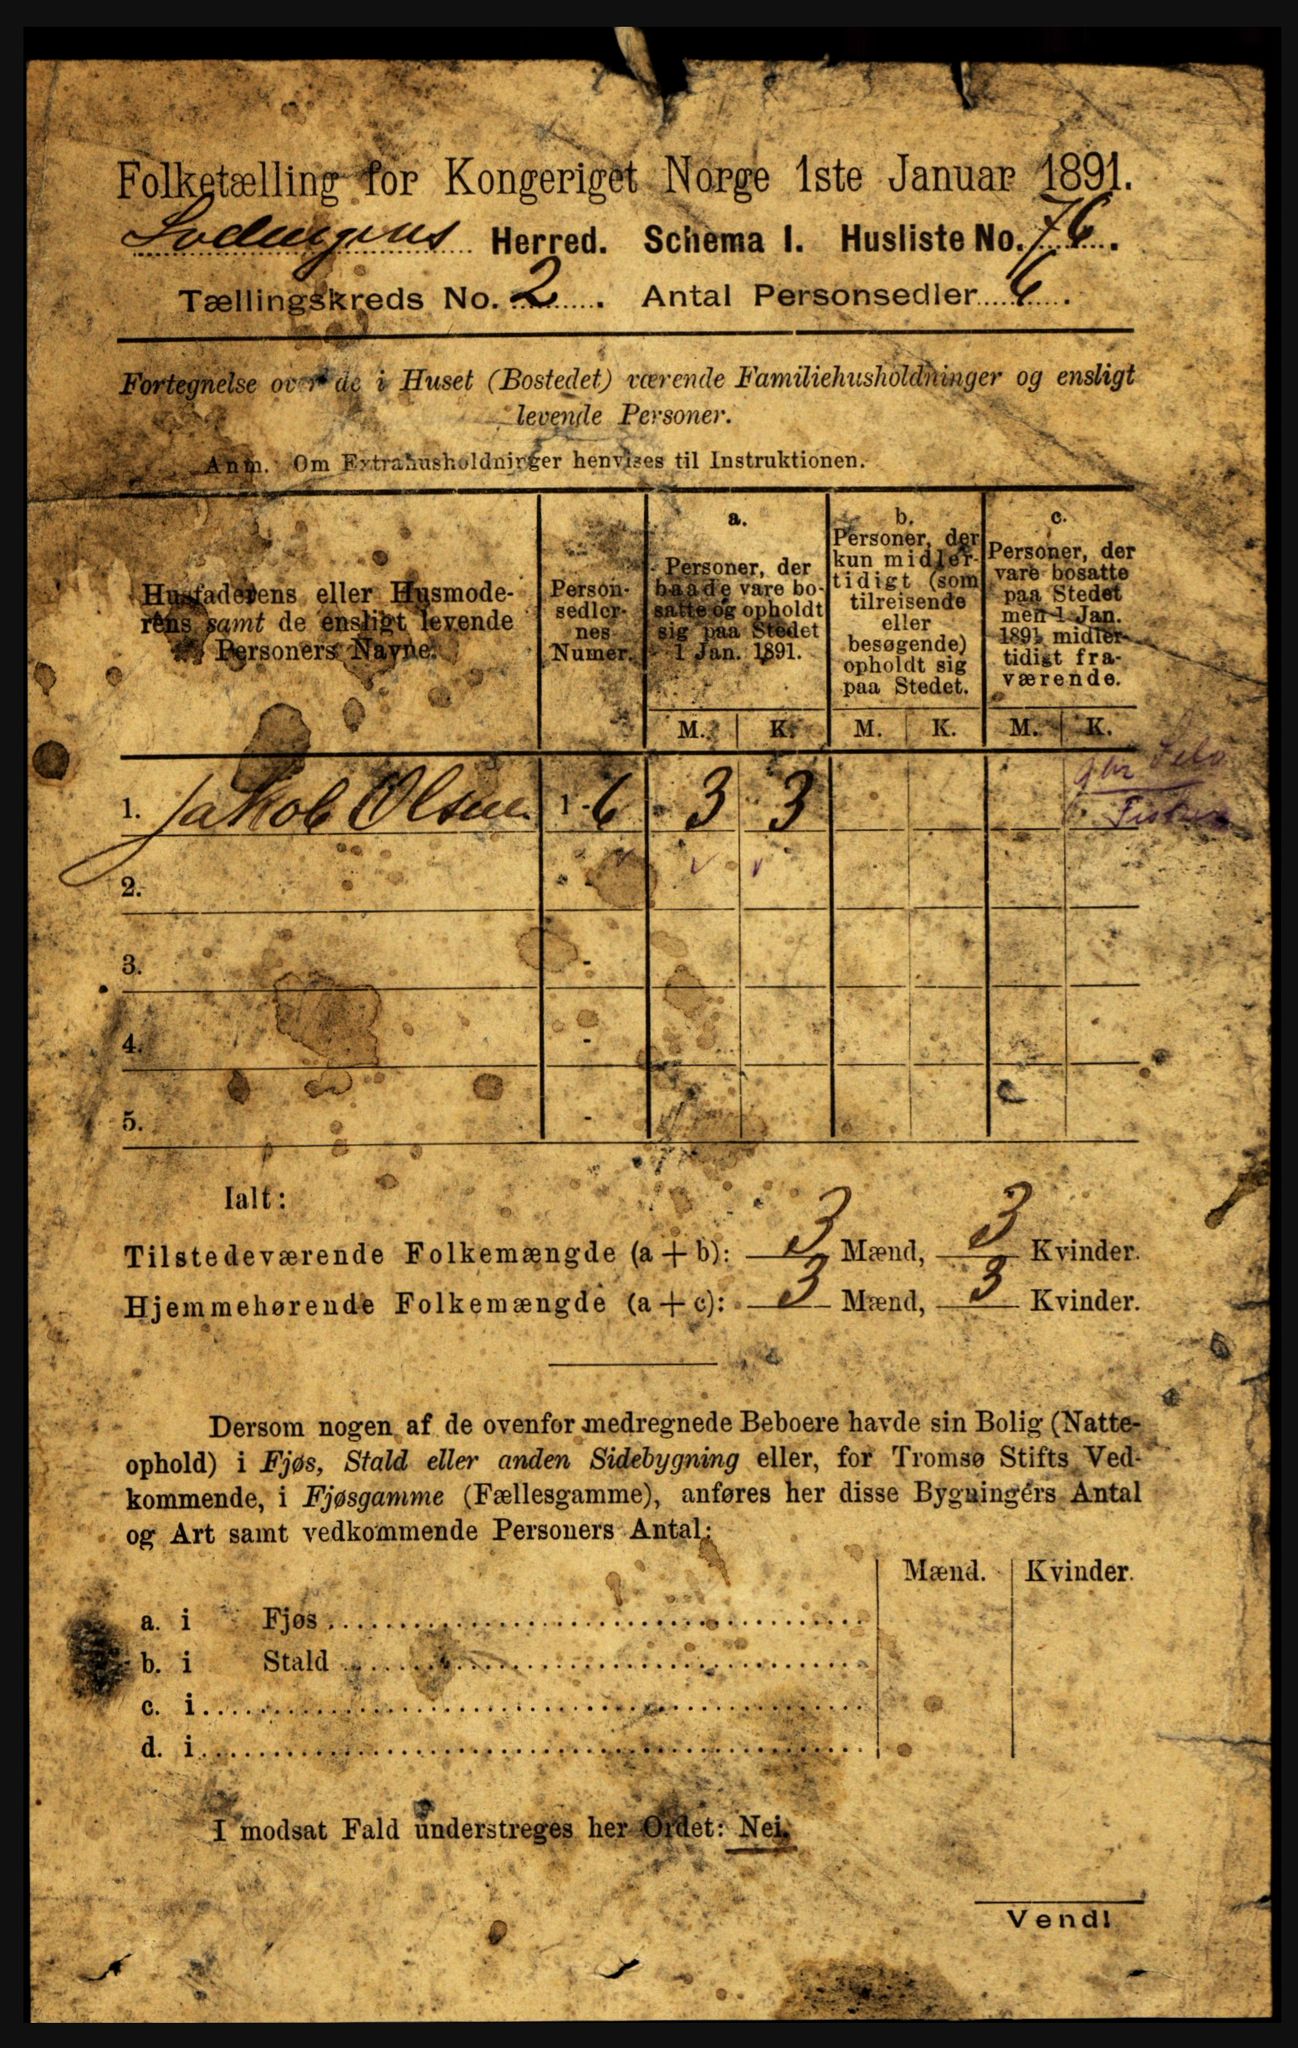 Folketælling for Kongeriget Norge 1ste Januar 1891.
Lodingens Herred. Schema I. Husliste No. 76.
Tællingskreds No. 2. Antal Personsedler 6.
Fortegnelse over de i Huset (Bostedet) værende Familiehusholdninger og ensligt
levende Personer.
Anm. Om Extrahusholdninger henvises til Instruktionen.
Husfaderens eller Husmode-
rens samt de ensligt levende
Personers Navne.
Person-
sedler-
nes
Numer.
a.
Personer, der
baade vare bo-
satte og opholdt
sig paa Stedet
1 Jan. 1891.
b.
Personer, der
kun midler-
tidigt (som
tilreisende
eller
besøgende)
opholdt sig
paa Stedet.
c.
Personer, der
vare bosatte
paa Stedet
men 1 Jan.
1891 midler-
tidigt fra-
værende.
M. K. M. K. M. K.
1. Jakob Olsen 1-6 3 3
2. -
3. -
4. -
5. -
Ialt:
Tilstedeværende Folkemængde (a+b): 3 Mænd, 3 Kvinder.
Hjemmehørende Folkemængde (a+c): 3 Mænd, 3 Kvinder.
Dersom nogen af de ovenfor medregnede Beboere havde sin Bolig (Natte-
ophold) i Fjøs, Stald eller anden Sidebygning eller, for Tromsø Stifts Ved-
kommende, i Fjøsgamme (Fællesgamme), anføres her disse Bygningers Antal
og Art samt vedkommende Personers Antal:
Mænd. Kvinder.
a. i Fjøs
b. i Stald
c. i
d. i
I modsat Fald understreges her Ordet: Nei.
Vend!